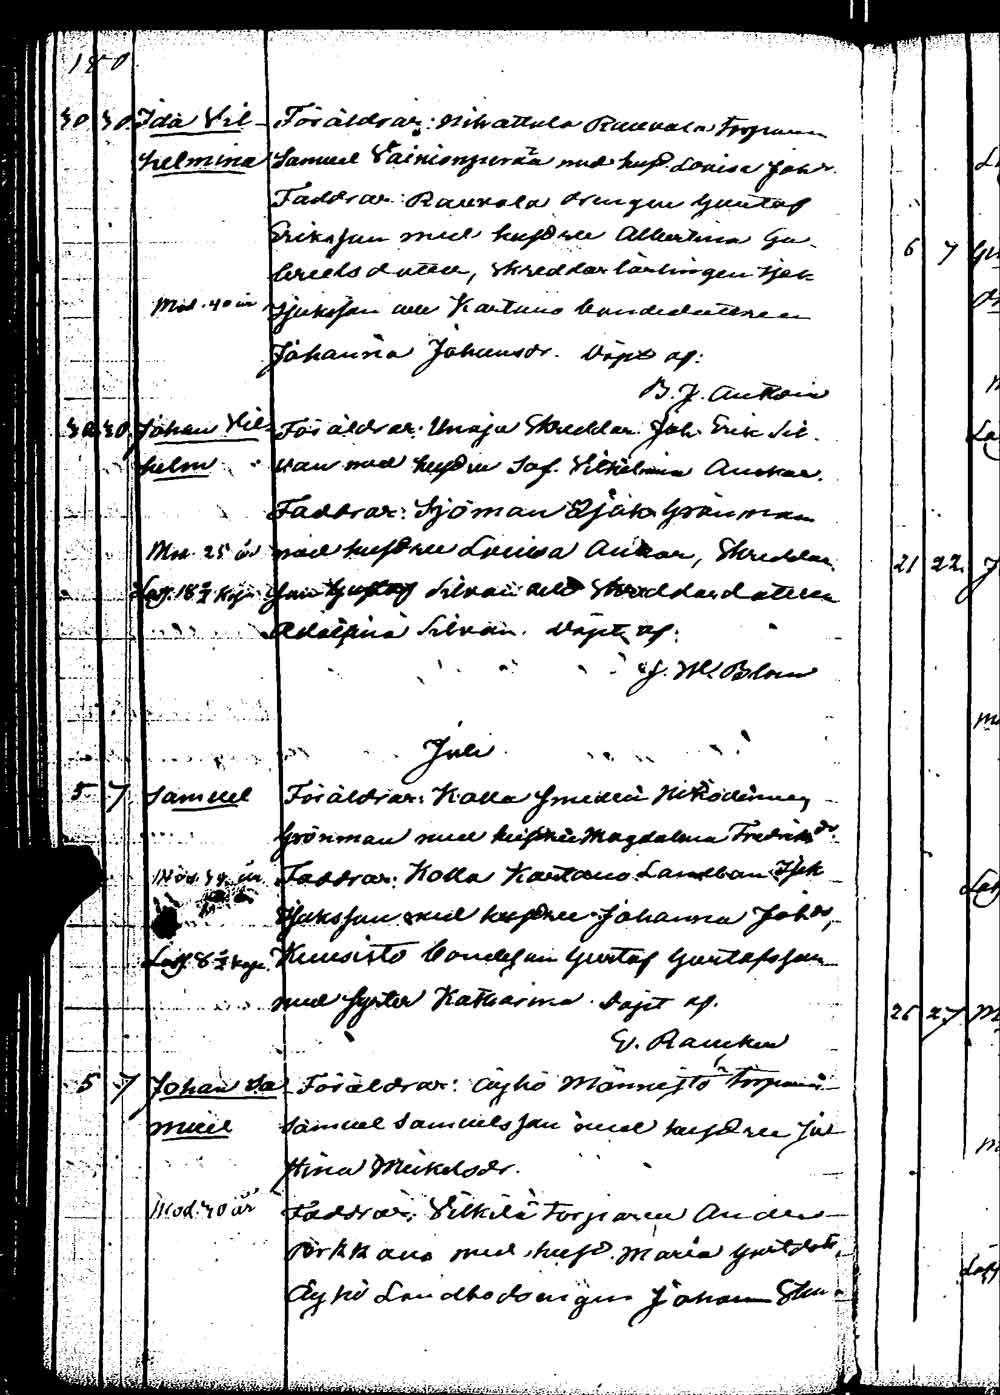 180.
30 30 Ida Vil- Föräldrar: Nihattula Rauvola Torparen
helmina Samuel Vainionperää med hust. Lovisa Joh dr.
Faddrar: Rauvola drengen Gustaf
Eriksson med hustru Albertina Ga-
brielsdotter, Skreddarlärlingen Isak
Mod. 40 år Isaksson och Kaetano bondedottren
Johanna Johansdr. Döpt af:
B. J.
30 30 Johan Vil- Föräldrar: Unaja Skreddar Joh. Erik Sil-
helm van med hustru Sof. Vilhelmina Ankar.
Faddrar: Sjöman Isak Grönman
Mod. 25 år med hustru Lovisa Ankar, Skreddar
Joh. Gustaf Silvan och Skreddardottren
Adolfina Silvan. Döpt af:
Blom
Juli
5 7 Samuel Föräldrar: Kolla Smeden Nikodemus
Grönman med hustru Magdalena Fredriks dr.
Mod. år Faddrar: Kolla Kaetano Landbon Isak
Isaksson med hustru Johanna Joh dr,
Kuusisto bondeson Gustaf Gustafsson
med syster Katharina. Döpt af.
E. Rancken
5 7 Johan Sa- Föräldrar: Äyhö Männistö Torparen
muel Samuel Samuelsson med hustru Ju-
stina Mikelsdr.
Mod. 40 år Faddrar: Vilkilä Torparen Anders
med hust. Maria Gust.dotr,
Äyhö Landbodrengen Johan
6 7
21 22
26 27